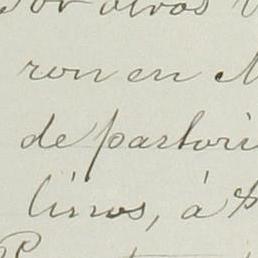 por otros
ron en
de pastori
linos, á